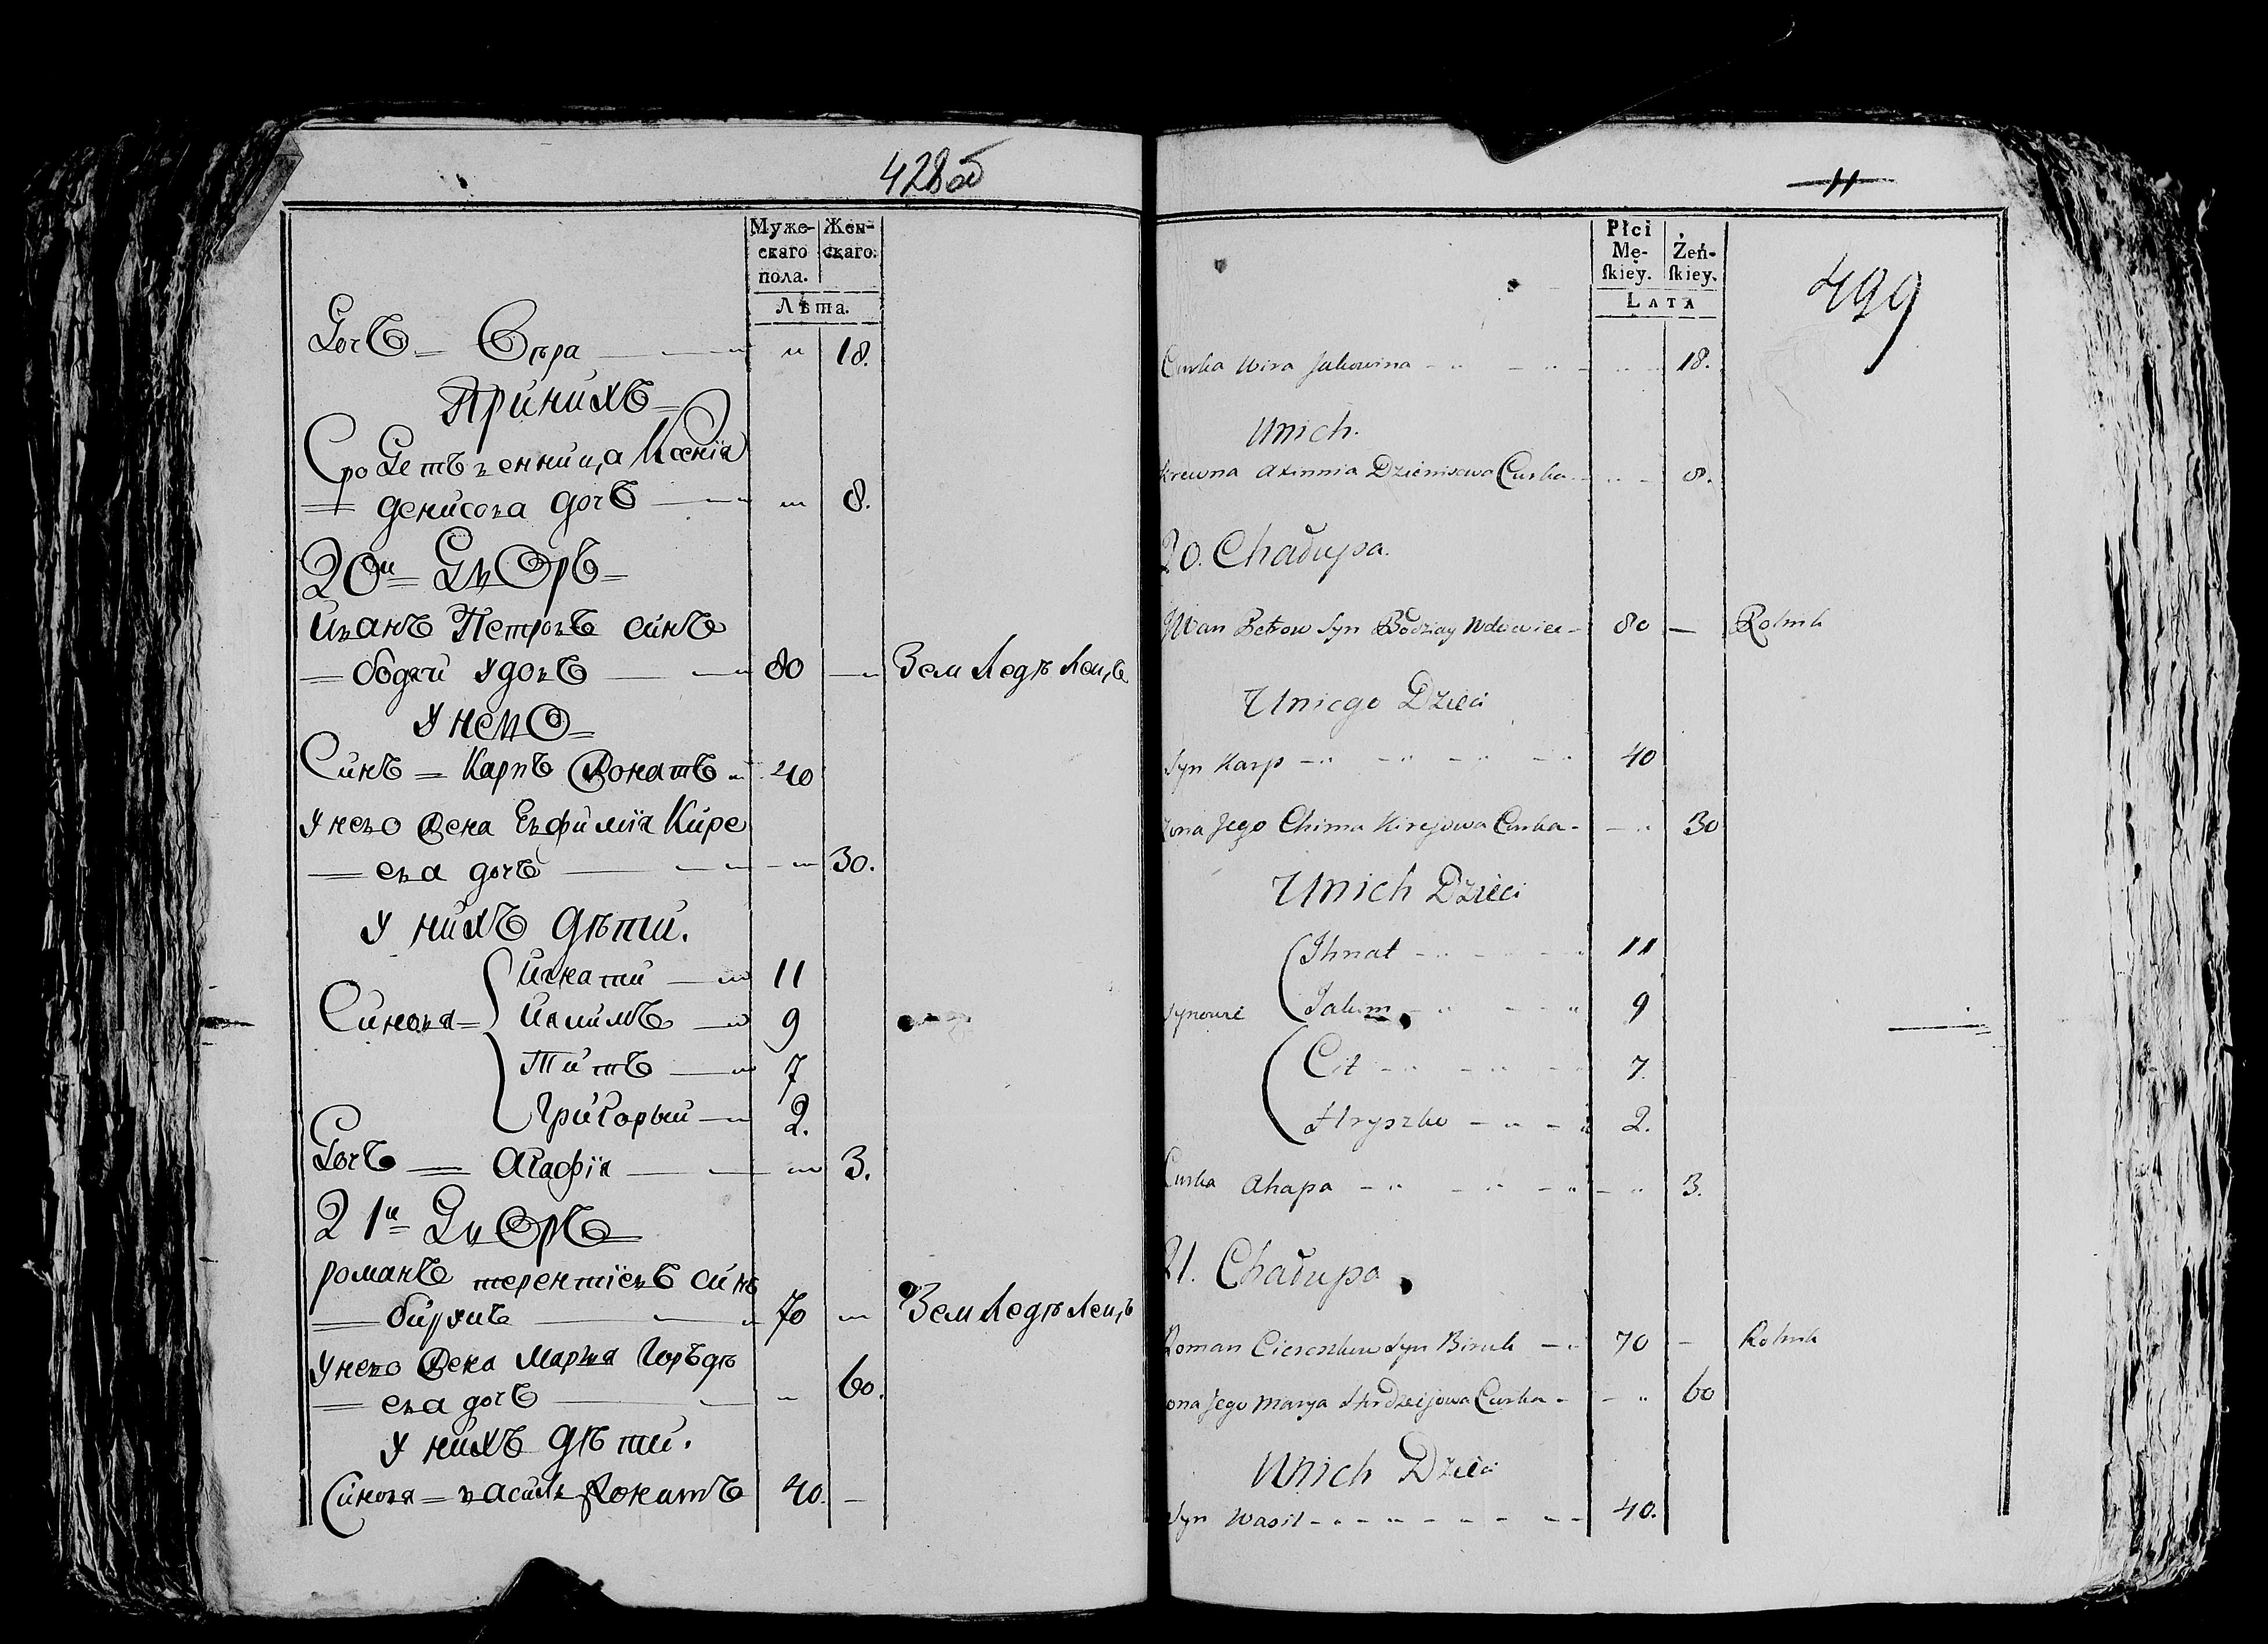 428 об
Муже-
скаго
пола.
Жен-
скаго.
Лѣта.
Дочь = Вѣра — „ 18.
При нихъ =
Сродственница Ксенїя
= денисова дочь — „ 8.
20й = Дворъ =
Иванъ Петровъ синъ
= бодяй удовъ — 80 — Земледѣлецъ
У него =
Синъ = Карпъ Жонатъ „ 40
У нево Жена Евфимїя Кире
= ева дочь — „ 30.
У нихъ дѣти.
Игнатий — 11
Синовя = Иякимъ — 9
Титъ — 7
Григорый — 2.
Дочъ = Агафїя — „ 3.
21й = Дворъ
романъ терентїевъ синъ
= бирукъ — 70 — Земледѣлецъ
У нево Жена Марья Гордѣ
= ева дочъ — „ 60.
У нихъ дѣти.
Синовя = василь Жонатъ 40. —
11
Płci
Mę-
ſkiey.
Żeń-
ſkiey.
LATA
499
Curka Wira Jakowina 18.
Unich.
Krewna Axinnia Dzienisowa Curka 8.
20. Chałupa.
Jwan Petrow Syn Bodziay Wdowiec 80 — Rolnik
Uniego Dzieci
Syn Karp 40
Zona Jego Chima Kirejowa Curka 30
Unich Dzieci
Jhnat 11
Synowie Jakim 9
Cit 7.
Hryszko 2.
Curka Ahapa 3.
21. Chałupa
Roman Ciereszkow Syn Biruk 70 — Rolnik
ona Jego Marya Hordzeijowa Curka 60
Unich Dzieci
Syn Wasil 40.